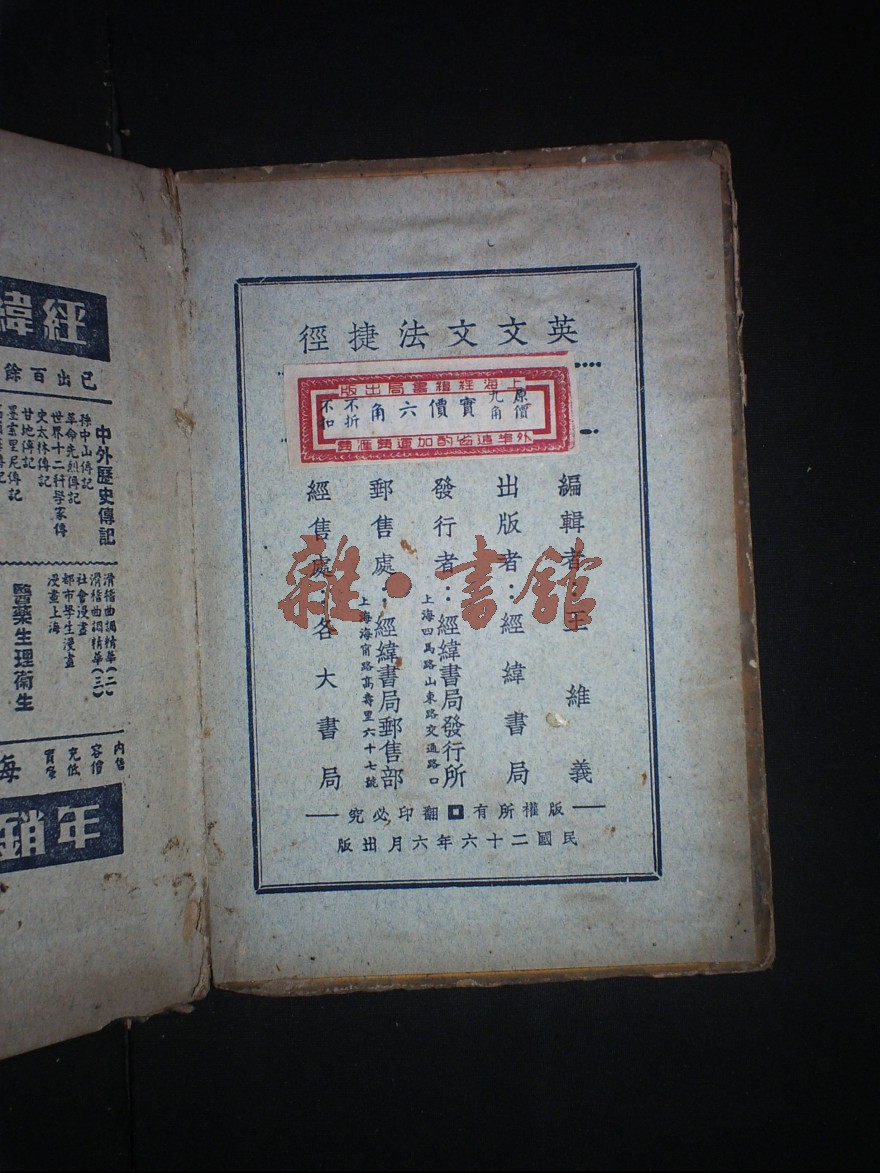 英文文法捷徑
上海經緯書局出版
原價
九角
實價六角
不折
不扣
外埠遠省酌加運費滙費
編輯者：王維義
出版者：經緯書局
發行者：經緯書局發行所
上海四馬路山東路交通路口
郵售處：經緯書局郵售部
上海海甯路高壽里六十七號
經售處：各大書局
版權所有翻印必究
民國二十六年六月出版
雜·書館
經緯
已出百餘
中外歷史傳記
孫中山傳記
革命先烈傳記
世界十二科學家傳
史太林傳記
甘地傳記
墨索里尼傳記
滑稽曲調精華(二)
滑稽曲調精華(三)
社會漫畫
都市學生漫畫
漫畫上海
醫藥生理衛生
內容充實
售價低廉
海
年銷